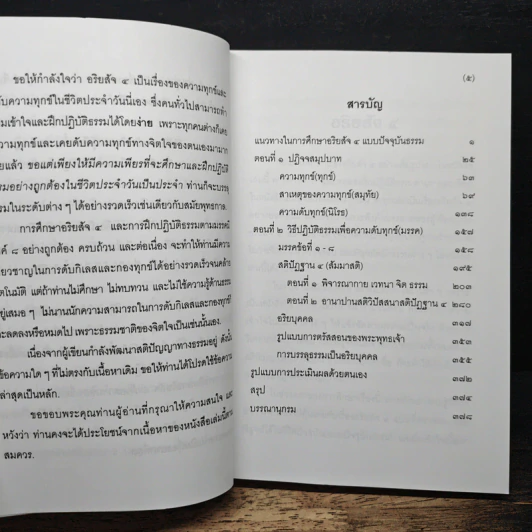 ขอให้กำลังใจว่า อริยสัจ ๔ เป็นเรื่องของความทุกข์และ
ดับความทุกข์ในชีวิตประจำวันนี่เอง ซึ่งคนทั่วไปสามารถทำ
มเข้าใจและฝึกปฏิบัติธรรมได้โดยง่าย เพราะทุกคนต่างก็เคย
วามทุกข์และเคยดับความทุกข์ทางจิตใจของตนเองมามาก
ยแล้ว ขอแต่เพียงให้มีความเพียรที่จะศึกษาและฝึกปฏิบัติ
รมอย่างถูกต้องในชีวิตประจำวันเป็นประจำ ท่านก็จะบรรลุ
รมในระดับต่าง ๆ ได้อย่างรวดเร็วเช่นเดียวกับสมัยพุทธกาล
การศึกษาอริยสัจ ๔ และการฝึกปฏิบัติธรรมตามมรรคมี
ค์ ๘ อย่างถูกต้อง ครบถ้วน และต่อเนื่อง จะทำให้ท่านมีความ
ยวชาญในการดับกิเลสและกองทุกข์ได้อย่างรวดเร็วจนคล้าย
ตโนมัติ แต่ถ้าท่านไม่ศึกษา ไม่ทบทวน และไม่ใช้ความรู้ด้านธรรม
ยู่เสมอ ๆ ไม่นานนักความสามารถในการดับกิเลสและกองทุกข์
ะลดลงหรือหมดไป เพราะธรรมชาติของจิตใจเป็นเช่นนั้นเอง
เนื่องจากผู้เขียนกำลังพัฒนาสติปัญญาทางธรรมอยู่ ดังนั้น
ข้อความใด ๆ ที่ไม่ตรงกับเนื้อหาเดิม ขอให้ท่านได้โปรดใช้ข้อความ
ล่าสุดเป็นหลัก
ขอขอบพระคุณท่านผู้อ่านที่กรุณาให้ความสนใจ และ
หวังว่า ท่านคงจะได้ประโยชน์จากเนื้อหาของหนังสือเล่มนี้ตาม
สมควร.
(๕)
สารบัญ
แนวทางในการศึกษาอริยสัจ ๔ แบบปัจจุบันธรรม ๑
ตอนที่ ๑ ปฏิจจสมุปบาท ๒๕
ความทุกข์(ทุกข์) ๖๓
สาเหตุของความทุกข์(สมุทัย) ๖๙
ความดับทุกข์(นิโรธ) ๑๓๘
ตอนที่ ๒ วิธีปฏิบัติธรรมเพื่อความดับทุกข์(มรรค) ๑๕๗
มรรคข้อที่ ๑ - ๘ ๑๕๘
สติปัฏฐาน ๔ (สัมมาสติ) ๑๙๕
ตอนที่ ๑ พิจารณากาย เวทนา จิต ธรรม ๒๐๓
ตอนที่ ๒ อานาปานสติวิปัสสนาสติปัฏฐาน ๔ ๒๘๐
อริยบุคคล ๓๑๗
รูปแบบการตรัสสอนของพระพุทธเจ้า ๓๕๓
การบรรลุธรรมเป็นอริยบุคคล ๓๕๕
รูปแบบการประเมินผลด้วยตนเอง ๓๗๒
สรุป ๓๗๔
บรรณานุกรม ๓๗๘